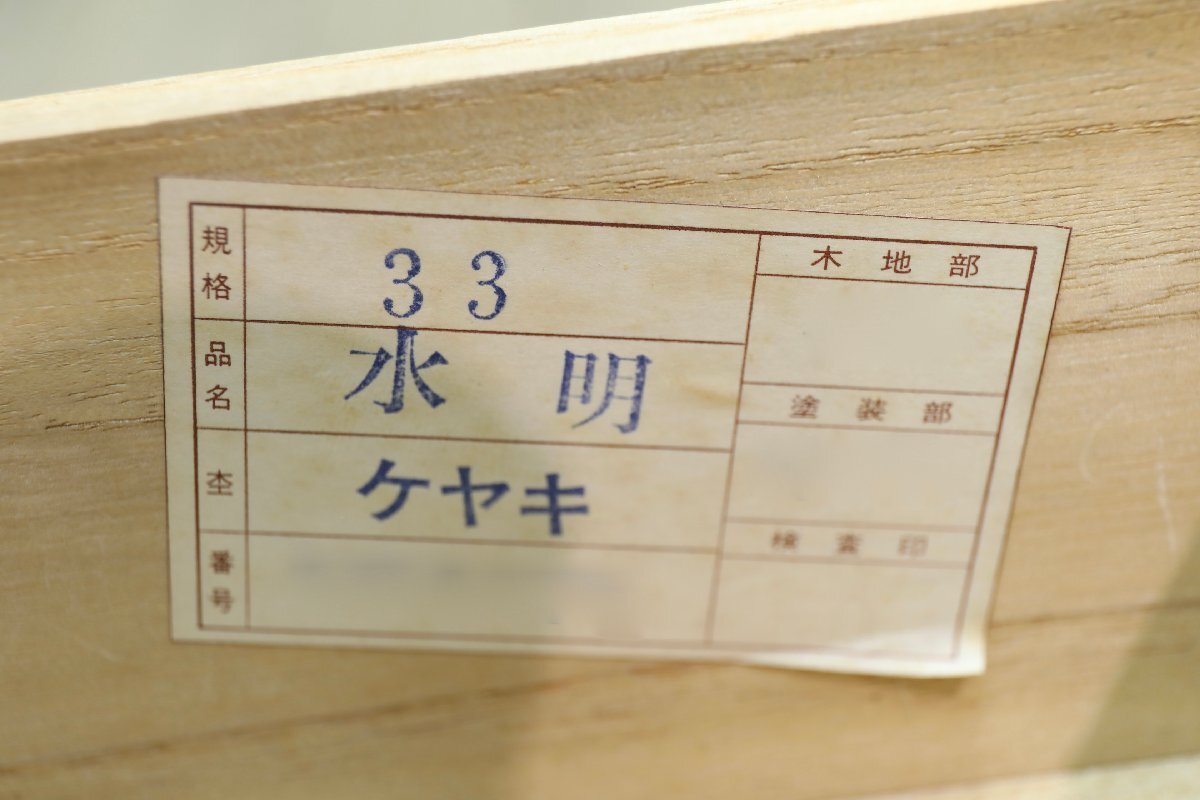 規格 33
品名 水明
杢 ケヤキ
番号
木地部
塗装部
検査印